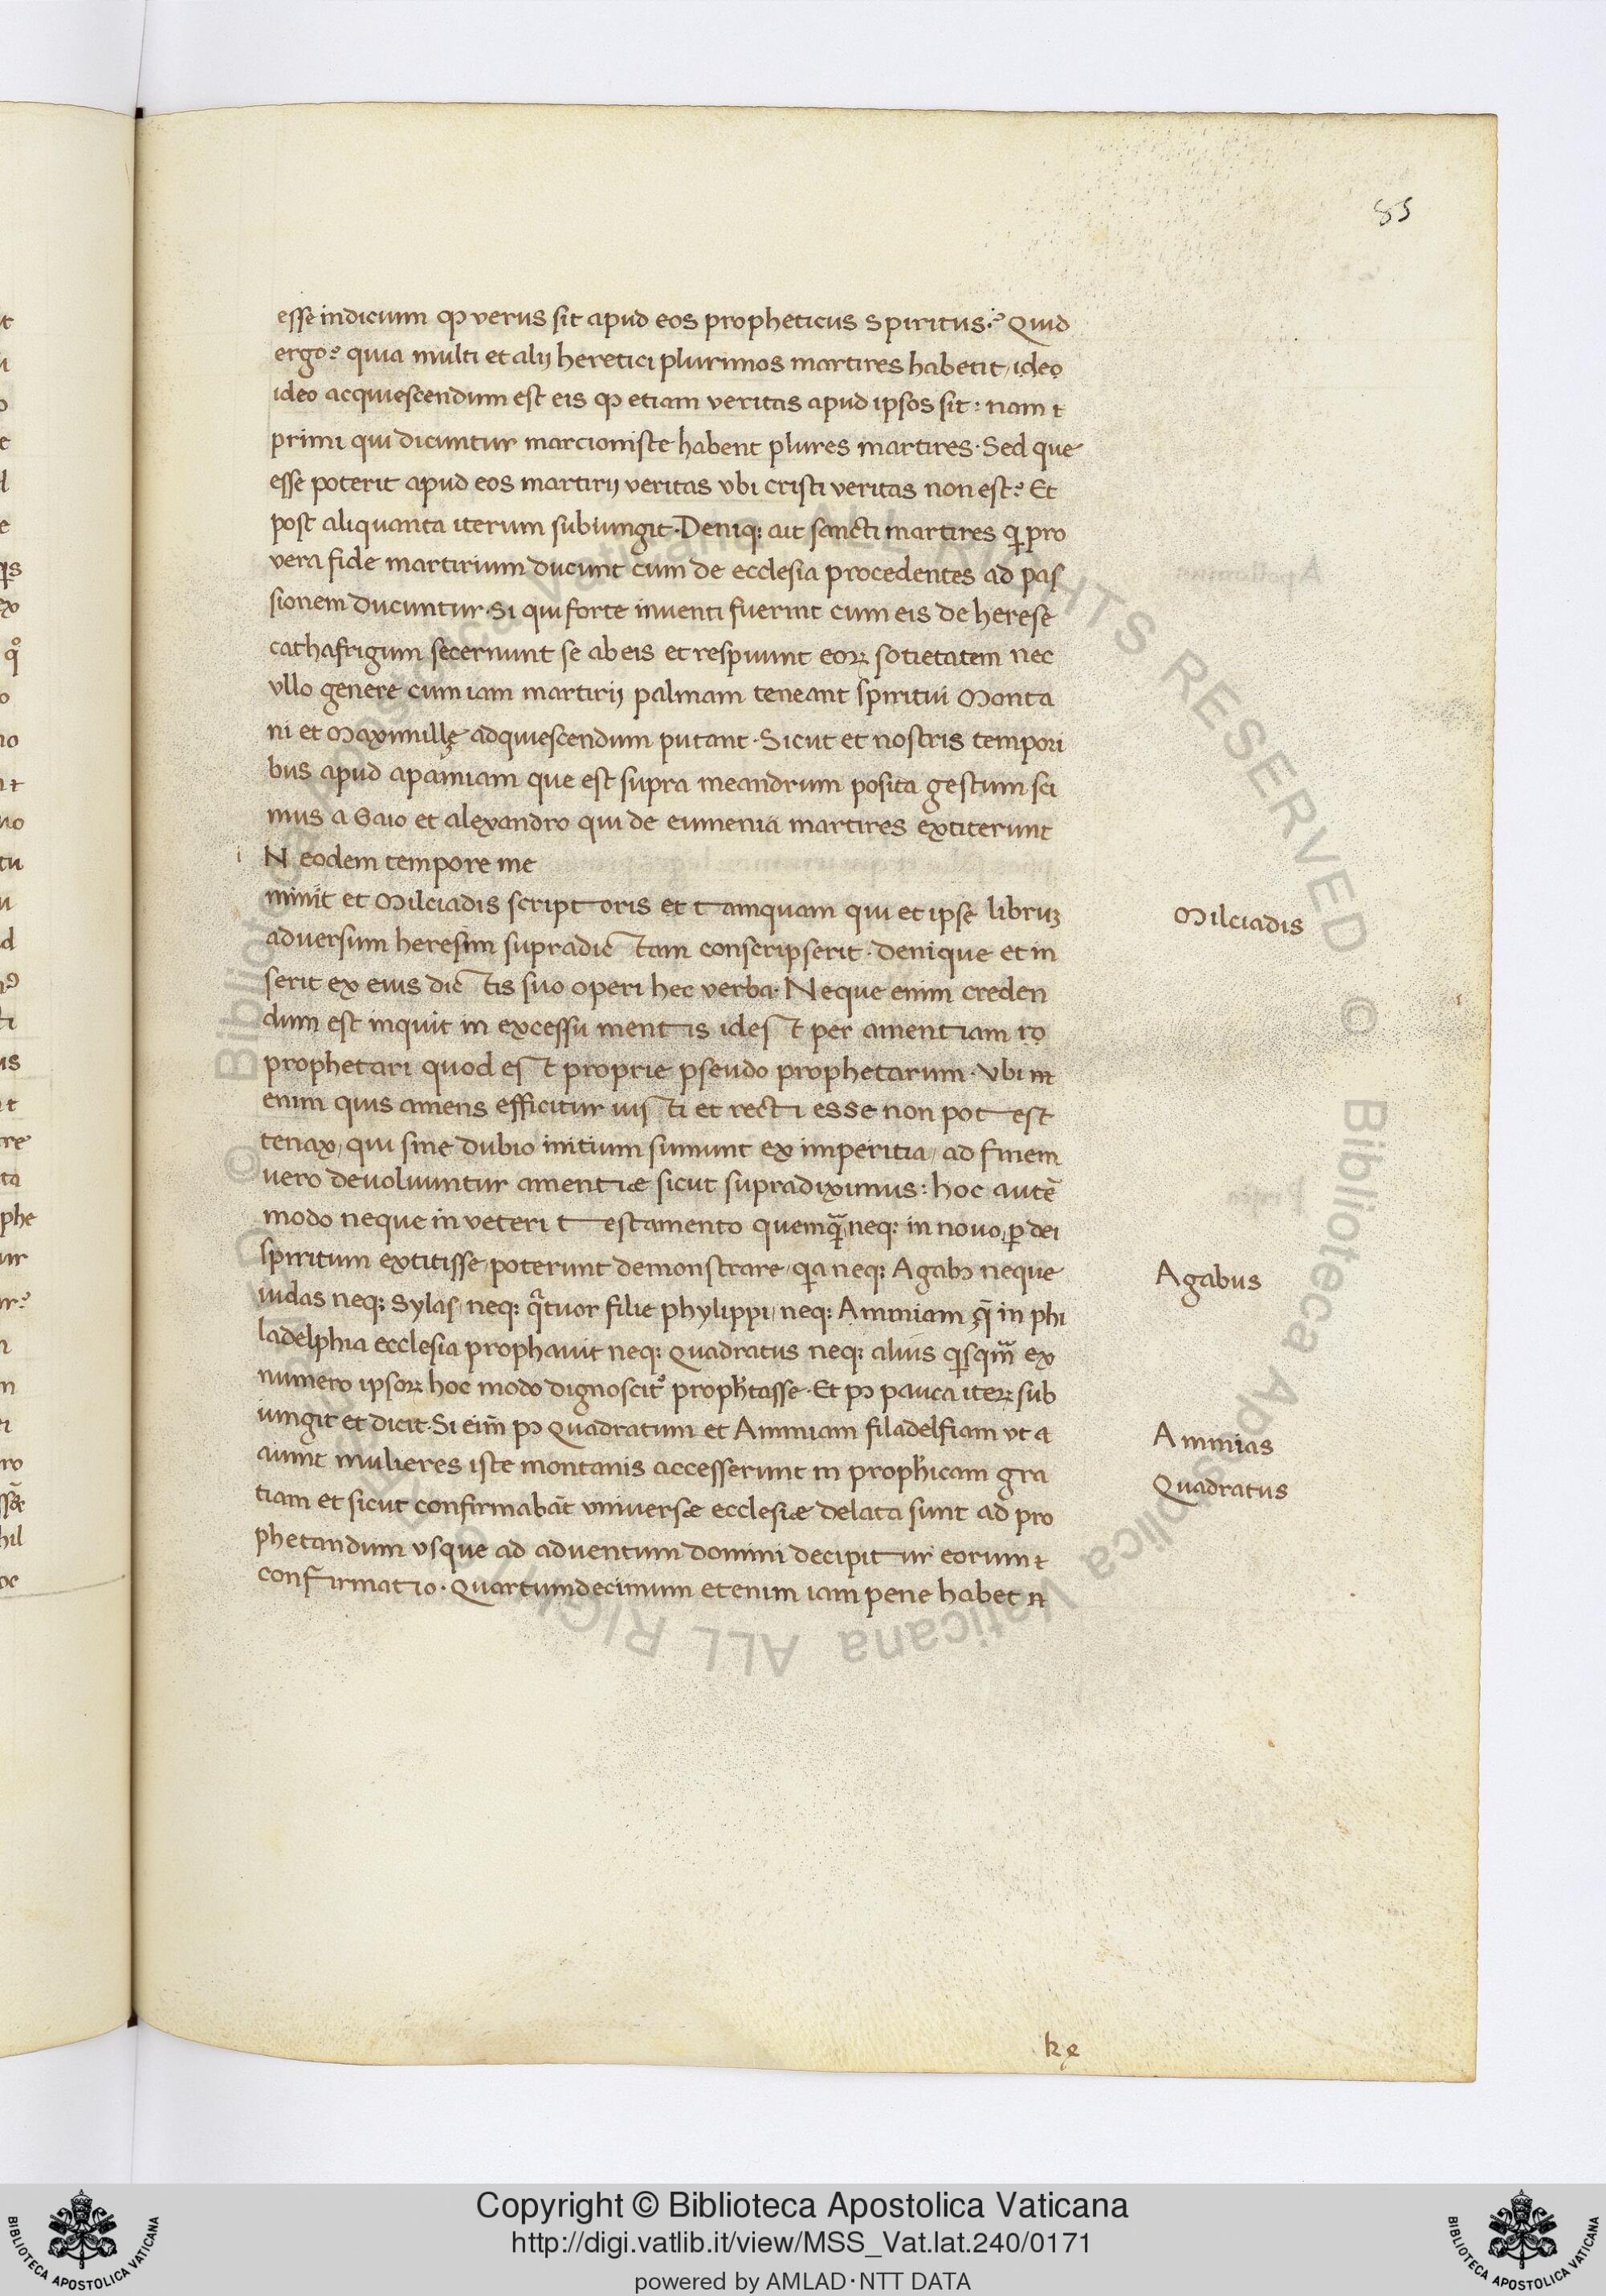 85
esse indicium ꝙ verus sit apud eos propheticus Spiritus? Quid
ergo? quia multi et alij heretici plurimos martires habetit, ideo
ideo acquiescendum est eis ꝙ etiam veritas apud ipsos sit: nam ⁊
primi qui dicuntur marcioniste habent plures martires. Sed que
esse poterit apud eos martirij veritas vbi cristi veritas non est? Et
post aliquanta iterum subiungit. Deniq; ait sancti martires q̇ pro
vera fide martirium ducunt cum de ecclesia procedentes ad pas
sionem ducuntur. Si qui forte inventi fuerint cum eis de herese
cathafrigum secernunt se ab eis et respuunt eoꝝ sotietatem nec
vllo genere cum iam martirij palmam teneant spiritui Monta
ni et Maximillę adquiescendum putant. Sicut et nostris tempori
bus apud apamiam que est supra meandrum posita gestum sci
mus a Gaio et alexandro qui de eumenia martires extiterunt
i N eodem tempore me
minit et Milciadis scriptoris et tamquam qui et ipse libruꝫ
Milciadis
adversum heresim supradictam conscripserit. Denique et in
serit ex eius dictis suo operi hec verba. Neque enim creden
dum est inquit in excessu mentis idest per amentiam ro
prophetari quod est proprie pseudo prophetarum. Vbi m
enim quis amens efficitur iusti et recti esse non potest
tenax, qui sine dubio initium sumunt ex imperitia, ad finem
vero devolvuntur amentiæ sicut supradiximus: hoc autē
modo neque in veteri testamento quemqā neq; in novo, ꝑ dei
spiritum extitisse, poterunt demonstrare, qia neq; Agabꝰ neque
Agabus
iudas neq; Sylas, neq; qatuor filie phylippi, neq; Ammiam q̄ in phi
ladelphia ecclesia prophavit neq; Quadratus neq; alius qisqm̄ ex
numero ipsoꝝ hoc modo dignoscit᷒ proph̄tasse. Et pꝰ pauca iteꝝ sub
iungit et dicit. Si eim̄ pꝰ Quadratum et Ammiam filadelfiam vt a
Ammias
aiunt mulieres iste montanis accesserunt in proph̄icam gra
Quadratus
tiam et sicut confirmabāt vniversæ ecclesiæ delata sunt ad pro
phetandum vsque ad adventum domini decipitur eorum ⁊
confirmatio. Quartumdecimum etenim iam pene habet n
Copyright © Biblioteca Apostolica Vaticana
http://digi.vatlib.it/view/MSS_Vat.lat.240/0171
powered by AMLAD·NTT DATA